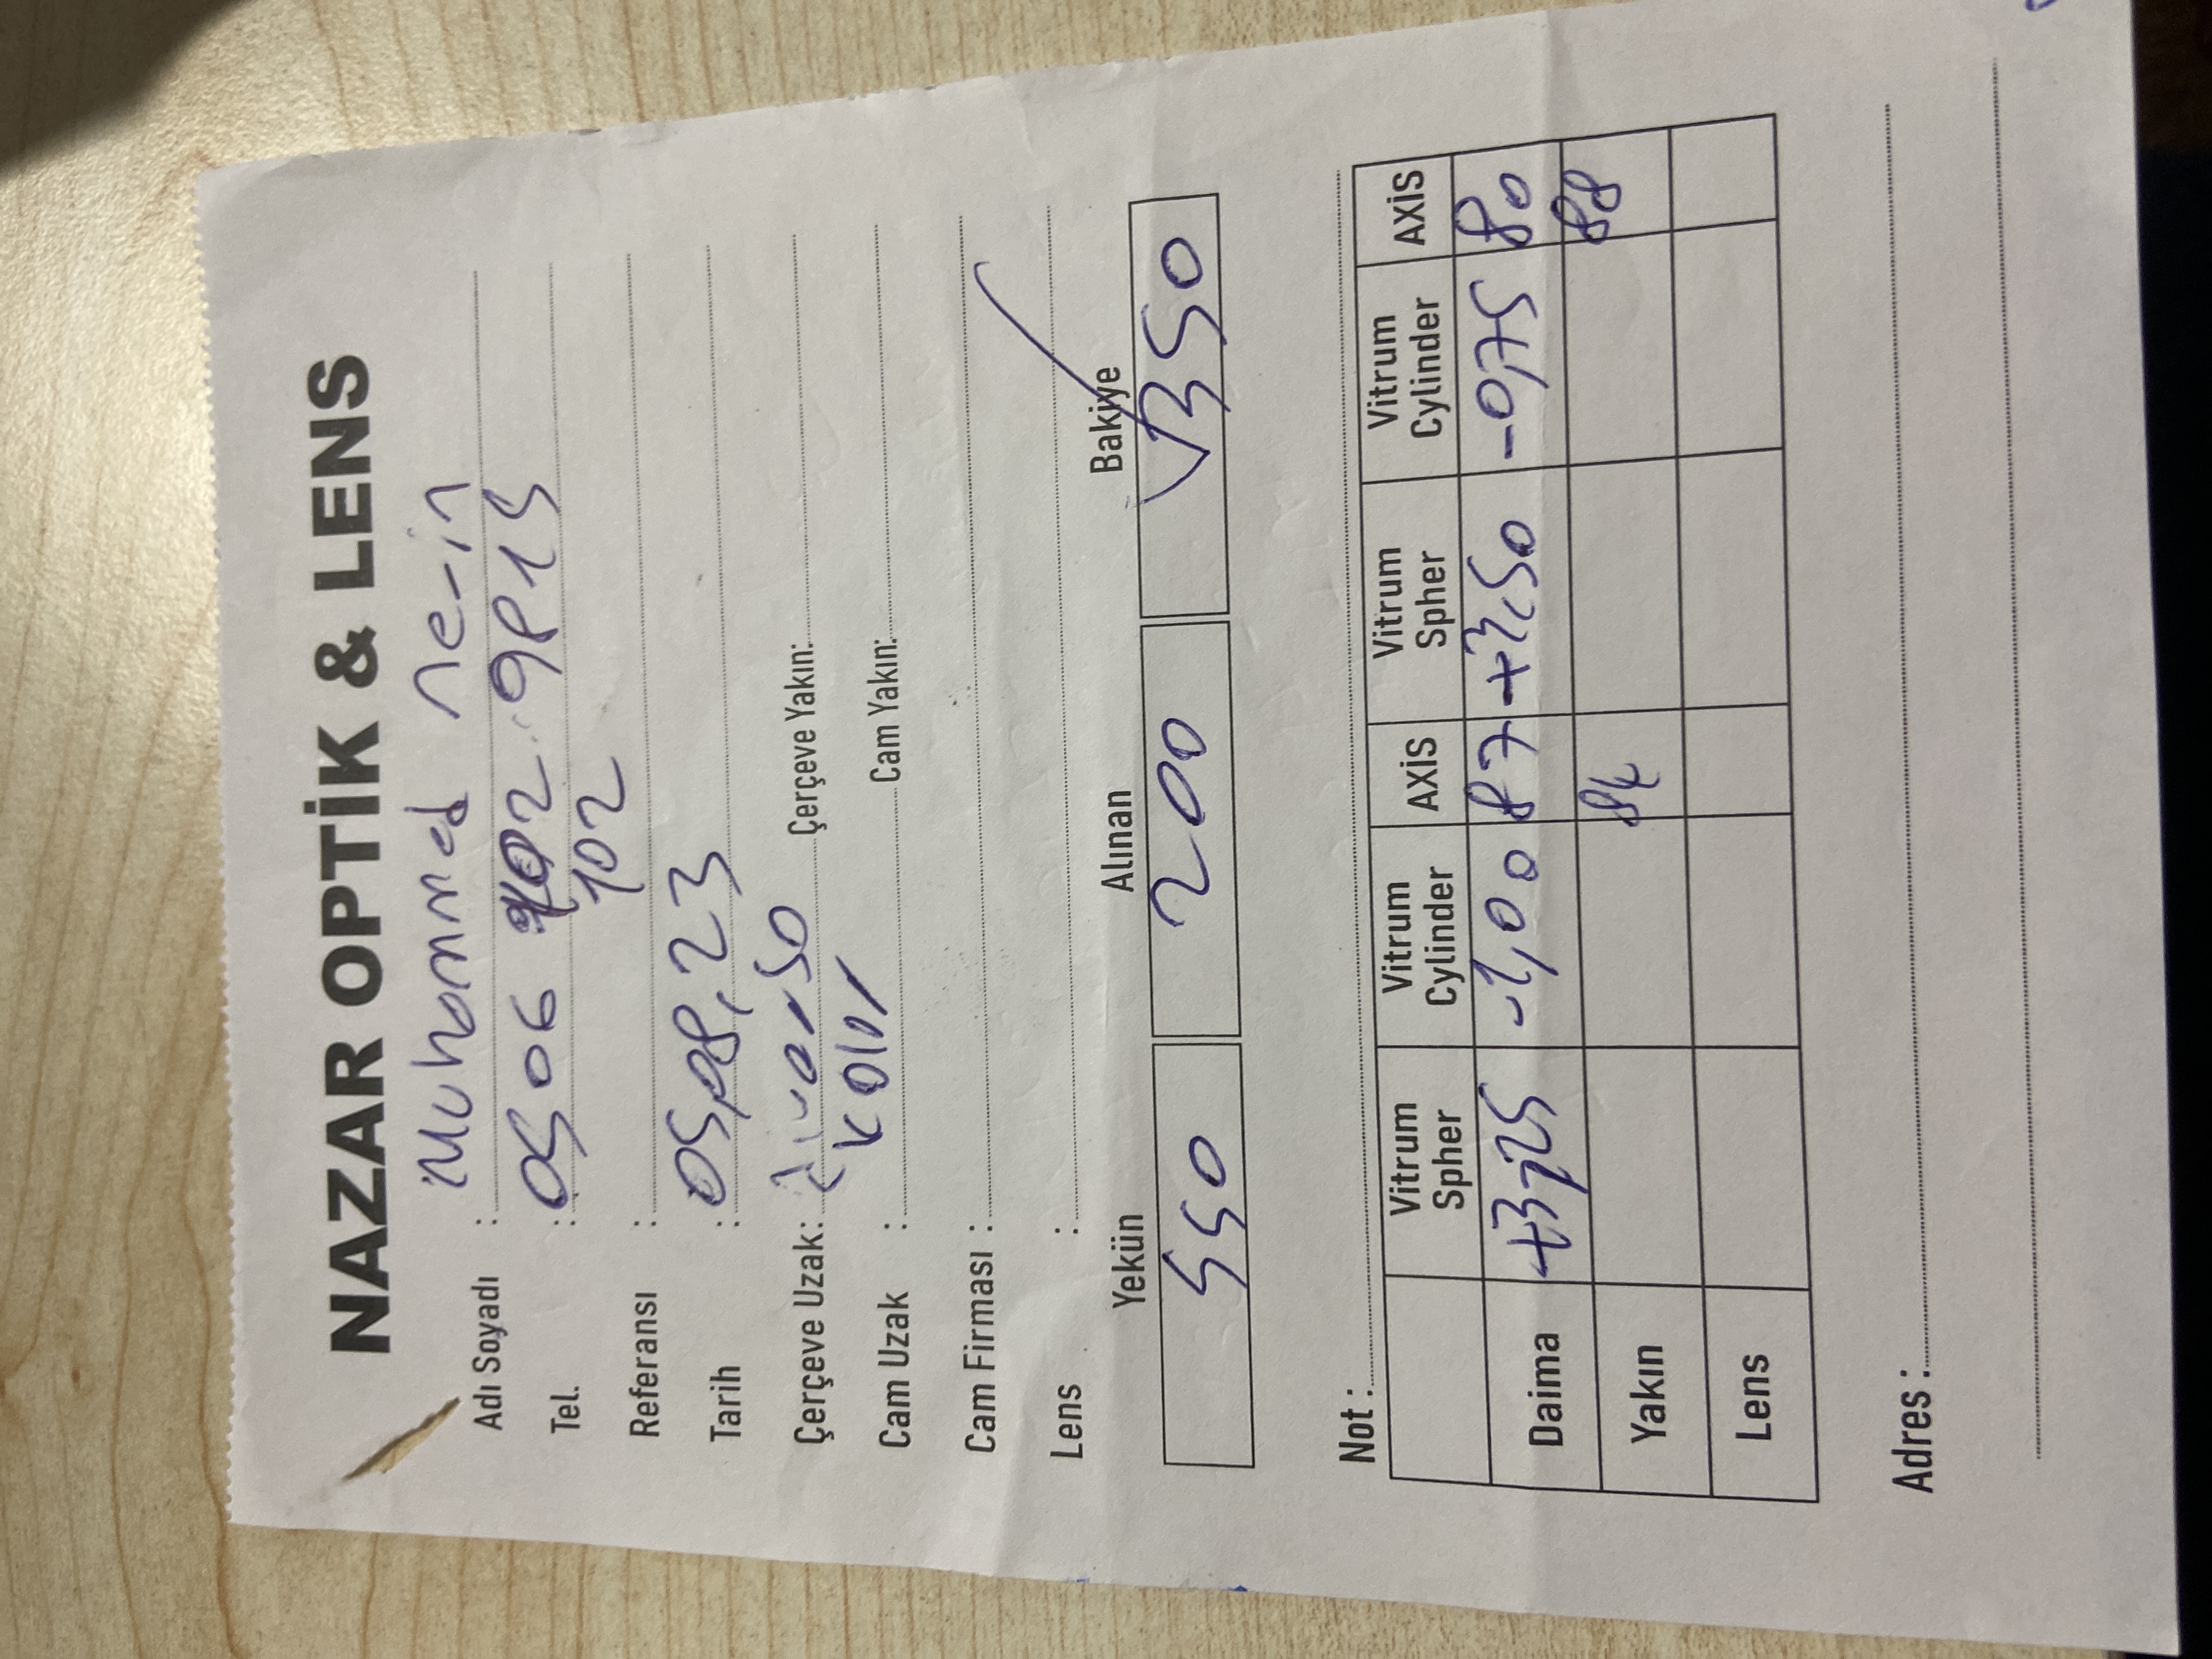 NAZAR OPTİK & LENS
Adı Soyadı : Muhammed Nerin
Tel. : 0506 102 9815
102
Referansı :
Tarih : 05,08,23
Çerçeve Uzak: Çerçeve Yakın:
Cam Uzak : Cam Yakın:
Cam Firması :
Lens :
Yekün Alınan Bakiye
550 200 350
Not :
Vitrum Spher Vitrum Cylinder AXİS Vitrum Spher Vitrum Cylinder AXİS
Daima +3,25 -1,00 87 +3,50 -0,75 80
Yakın 84 88
Lens
Adres :